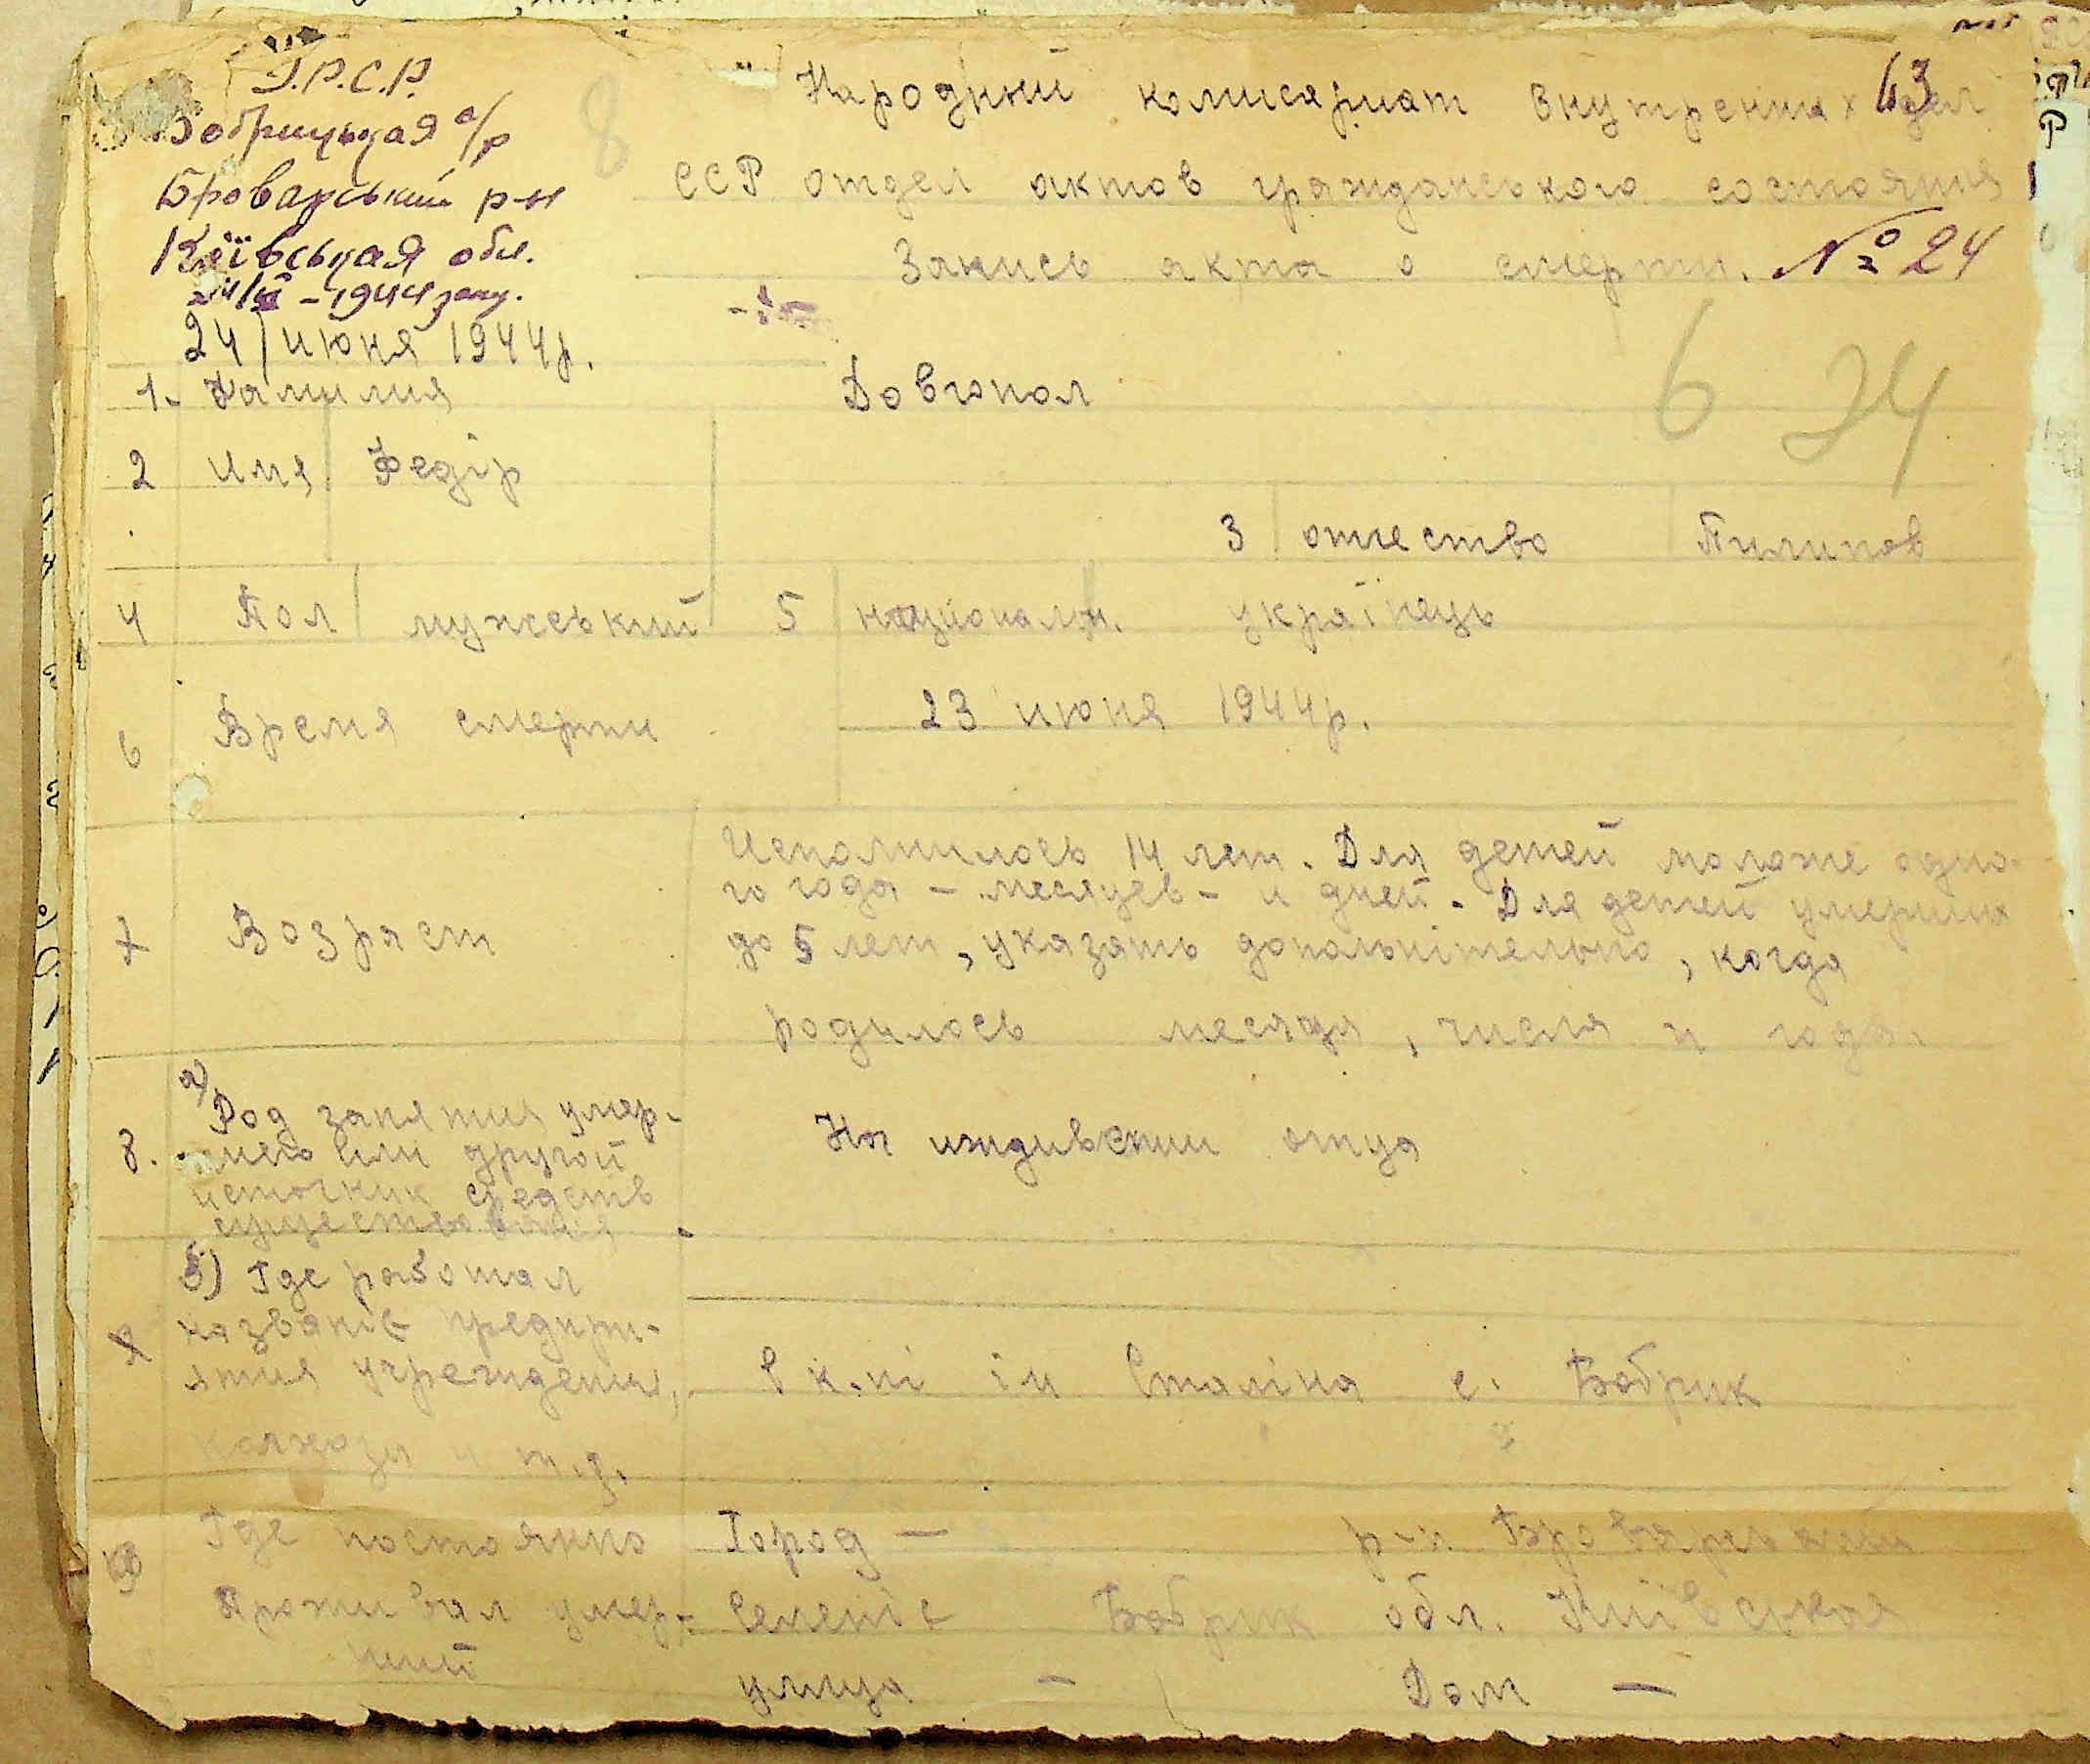 У.Р.С.Р.
Бобрицькая с/р
Броварський р-н
Київськая обл.
24/VI – 1944 року.
24 июня 1944р.
8
63
Народний комисариат внутренних дел
ССР отдел актов гражданського состояния
Запись акта о смерти. № 24
6 24
1. Фамилия Довгопол
2 Имя Федір
3 отчество Пилипов
4 Пол мужський 5 национальн. українець
6 Время смерти 23 июня 1944р.
7 Возраст
Исполнилось 14 лет. Для детей моложе одно-
го года – месяцев – и дней. Для детей умерших
до 5 лет, указать дополнітельно, когда
родилось месяца, числа и года.
8. а) Род занятия умер-
шего или другой
источник средств
существования
На иждивении отца
б) Где работал
названіе предпри-
ятия учреждения,
колхоза и т.д.
в к-пі ім Сталіна с. Бобрик
Где постоянно
проживал умер-
ший
Город — р-н Броварський
Селеніе Бобрик обл. Київськая
улица — Дом —